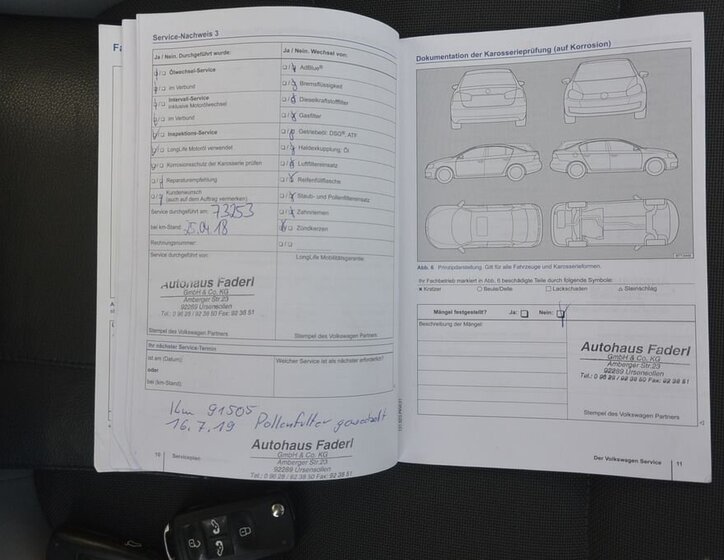 Service-Nachweis 3
Ja / Nein. Durchgeführt wurde:
Ölwechsel-Service
im Verbund
Intervall-Service
inklusive Motorölwechsel
im Verbund
Inspektions-Service
LongLife Motoröl verwendet
Korrosionsschutz der Karosserie prüfen
Reparaturempfehlung
Kundenwunsch
(auch auf dem Auftrag vermerken)
Service durchgeführt am: 73253
bei km-Stand: 25.04.18
Rechnungsnummer:
Service durchgeführt von:
Autohaus Faderl
GmbH & Co. KG
Amberger Str.23
92289 Ursensollen
Tel.: 0 96 28 / 92 38 50 Fax: 92 38 51
Stempel des Volkswagen Partners
Ja / Nein. Wechsel von:
AdBlue®
Bremsflüssigkeit
Dieselkraftstofffilter
Gasfilter
Getriebeöl: DSG®, ATF
Haldexkupplung, Öl
Luftfiltereinsatz
Reifenfüllflasche
Staub- und Pollenfiltereinsatz
Zahnriemen
Zündkerzen
LongLife Mobilitätsgarantie:
Stempel des Volkswagen Partners
Ihr nächster Service-Termin
ist am (Datum):
oder
bei (km-Stand):
Welcher Service ist als nächster erforderlich?
Km 91505
16.7.19 Pollenfilter gewechselt
Autohaus Faderl
GmbH & Co. KG
Amberger Str.23
92289 Ursensollen
Tel.: 0 96 28 / 92 38 50 Fax: 92 38 51
10 Serviceplan
Dokumentation der Karosserieprüfung (auf Korrosion)
Abb. 6 Prinzipdarstellung. Gilt für alle Fahrzeuge und Karosserieformen.
Ihr Fachbetrieb markiert in Abb. 6 beschädigte Teile durch folgende Symbole:
× Kratzer ○ Beule/Delle □ Lackschaden △ Steinschlag
Mängel festgestellt? Ja: Nein:
Beschreibung der Mängel:
Autohaus Faderl
GmbH & Co. KG
Amberger Str.23
92289 Ursensollen
Tel.: 0 96 28 / 92 38 50 Fax: 92 38 51
Stempel des Volkswagen Partners
Der Volkswagen Service 11